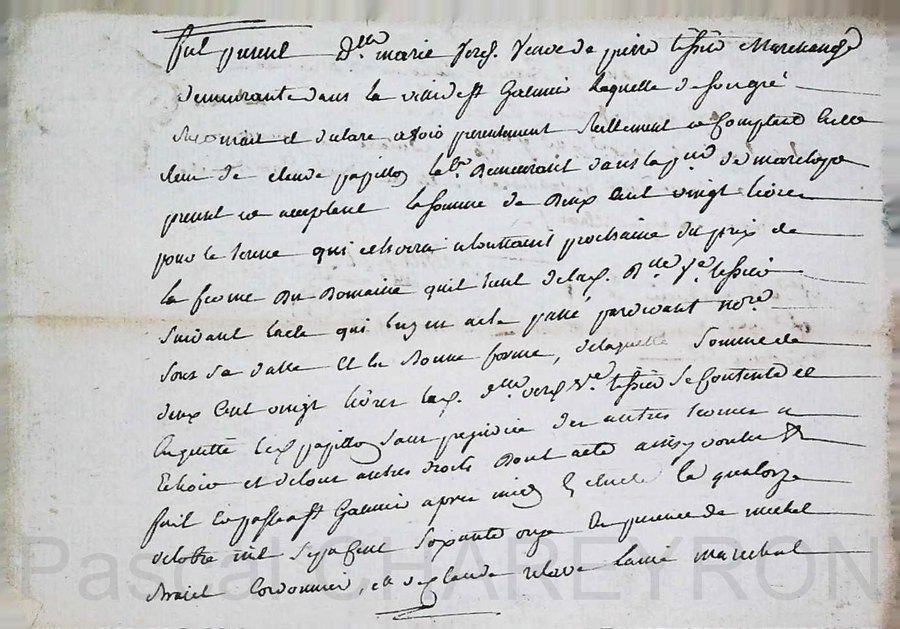 fut present D.lle marie verd. Veuve de pierre tessier Marchand
demeurante dans la ville de st Galmier laquelle de son gré
reconnait et declare avoir presentement reellement ce comptant
de claude papillon demeurant dans la de marclop
present ce acceptant la somme de Deux Cent vingt livres
pour le terme qui echoira a toussaint prochaine du prix de
la ferme Du Domaine quil tient de lad. D.lle v.e tessier
suivant lacte qui luy en a ete passé pardevant no.re
sous sa datte Et en Bonne forme, delaquelle somme de
deux cent vingt livres lad. d.lle verd v.e tessier se contente et
En quitte led. papillon sans prejudice des autres termes a
Echoir et de tous autres droits Dont acte ainsy voulu
fait et passé a st Galmier apres midy le quatorze
octobre mil sept cent soixante onze En presence de michel
Cordonnier, et de claude lainé marechal
Pascal CHAREYRON